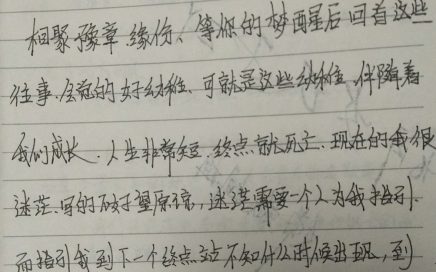 相聚豫章,缘份、等你的梦两星后回首这些
往事,会觉的好幼稚、可就是这些幼稚、伴随着
我们成长、人生非常短、终点就死亡、现在的我很
迷茫、写的不好望原谅,迷茫需要一个人为我指引、
而指引我到下一个终点站不知什么时候出现,到